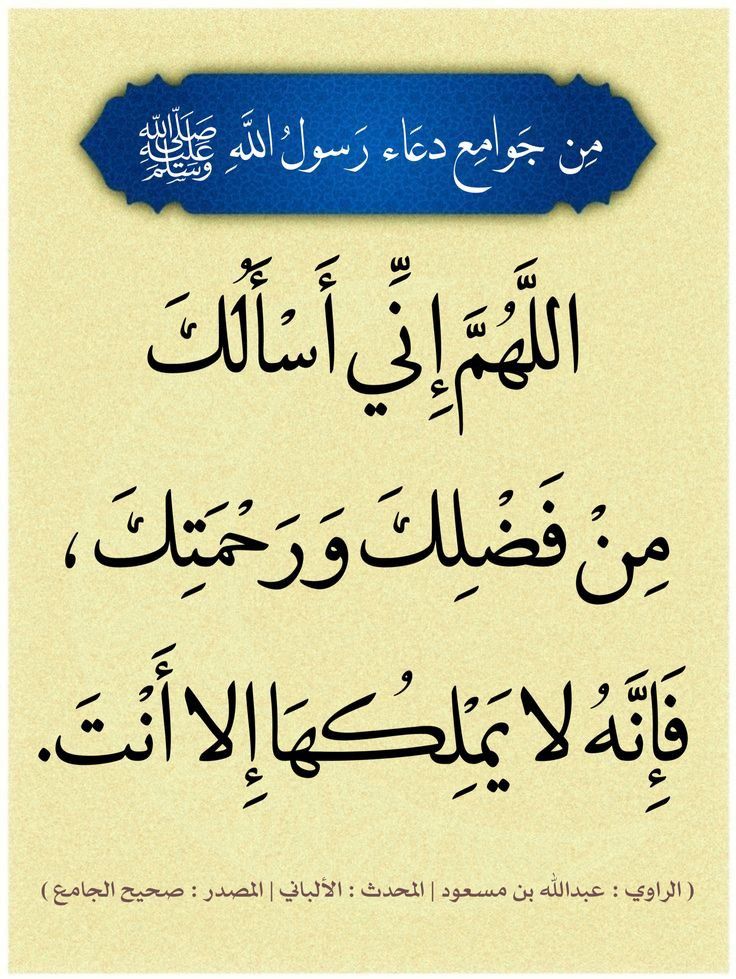 مِن جَوامِع دعَاء رَسولُ اللَّهِ ﷺ
اللَّهُمَّ إِنِّي أَسْأَلُكَ
مِنْ فَضْلِكَ وَرَحْمَتِكَ ،
فَإِنَّهُ لا يَمْلِكُهَا إِلا أَنْتَ.
( الراوي : عبدالله بن مسعود | المحدث : الألباني | المصدر : صحيح الجامع )